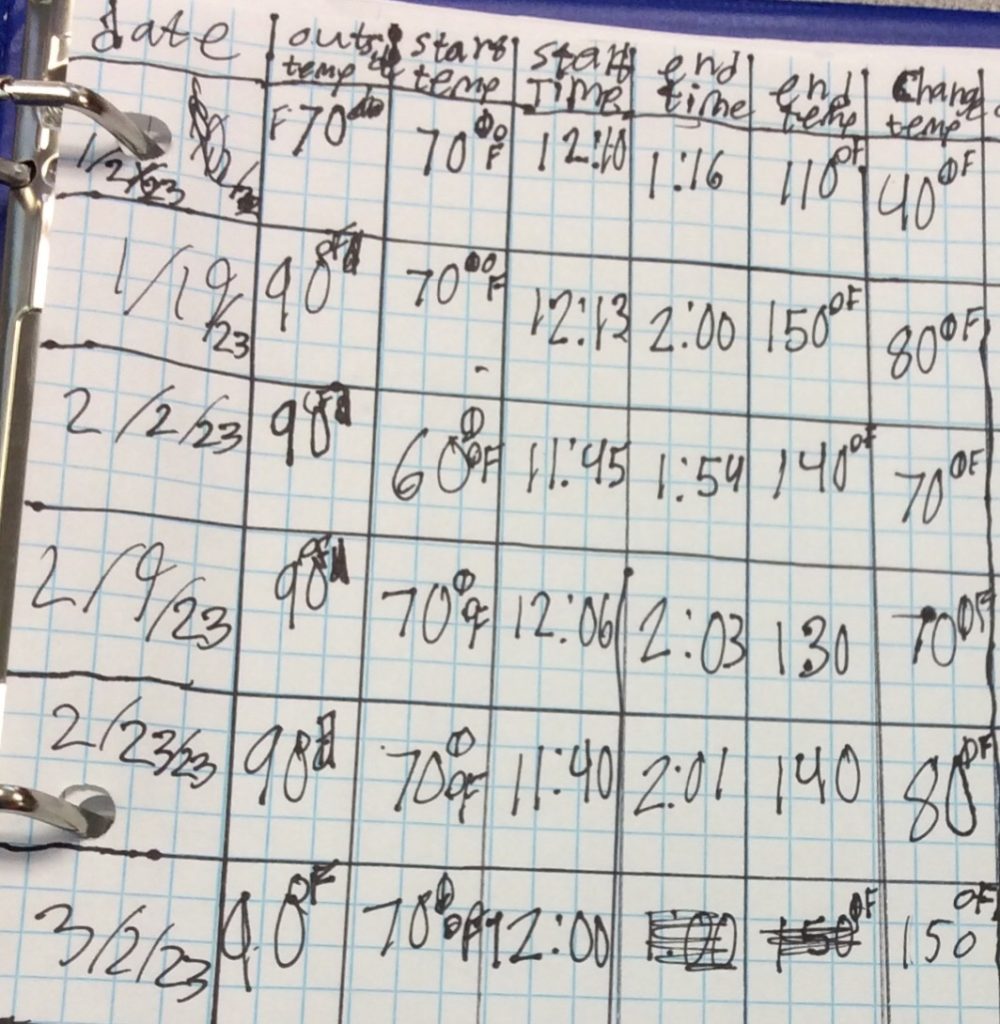 date outside temp start temp start TIME end time end temp Change temp
1/21/23 F70 70°F 12:10 1:16 110°F 40°F
1/19/23 90°F 70°F 12:13 2:00 150°F 80°F
2/2/23 90°F 60°F 11:45 1:54 140°F 70°F
2/9/23 90°F 70°F 12:06 2:03 130 70°F
2/23/23 90 70°F 11:40 2:01 140 80°F
3/2/23 90°F 70°F 12:00 150°F